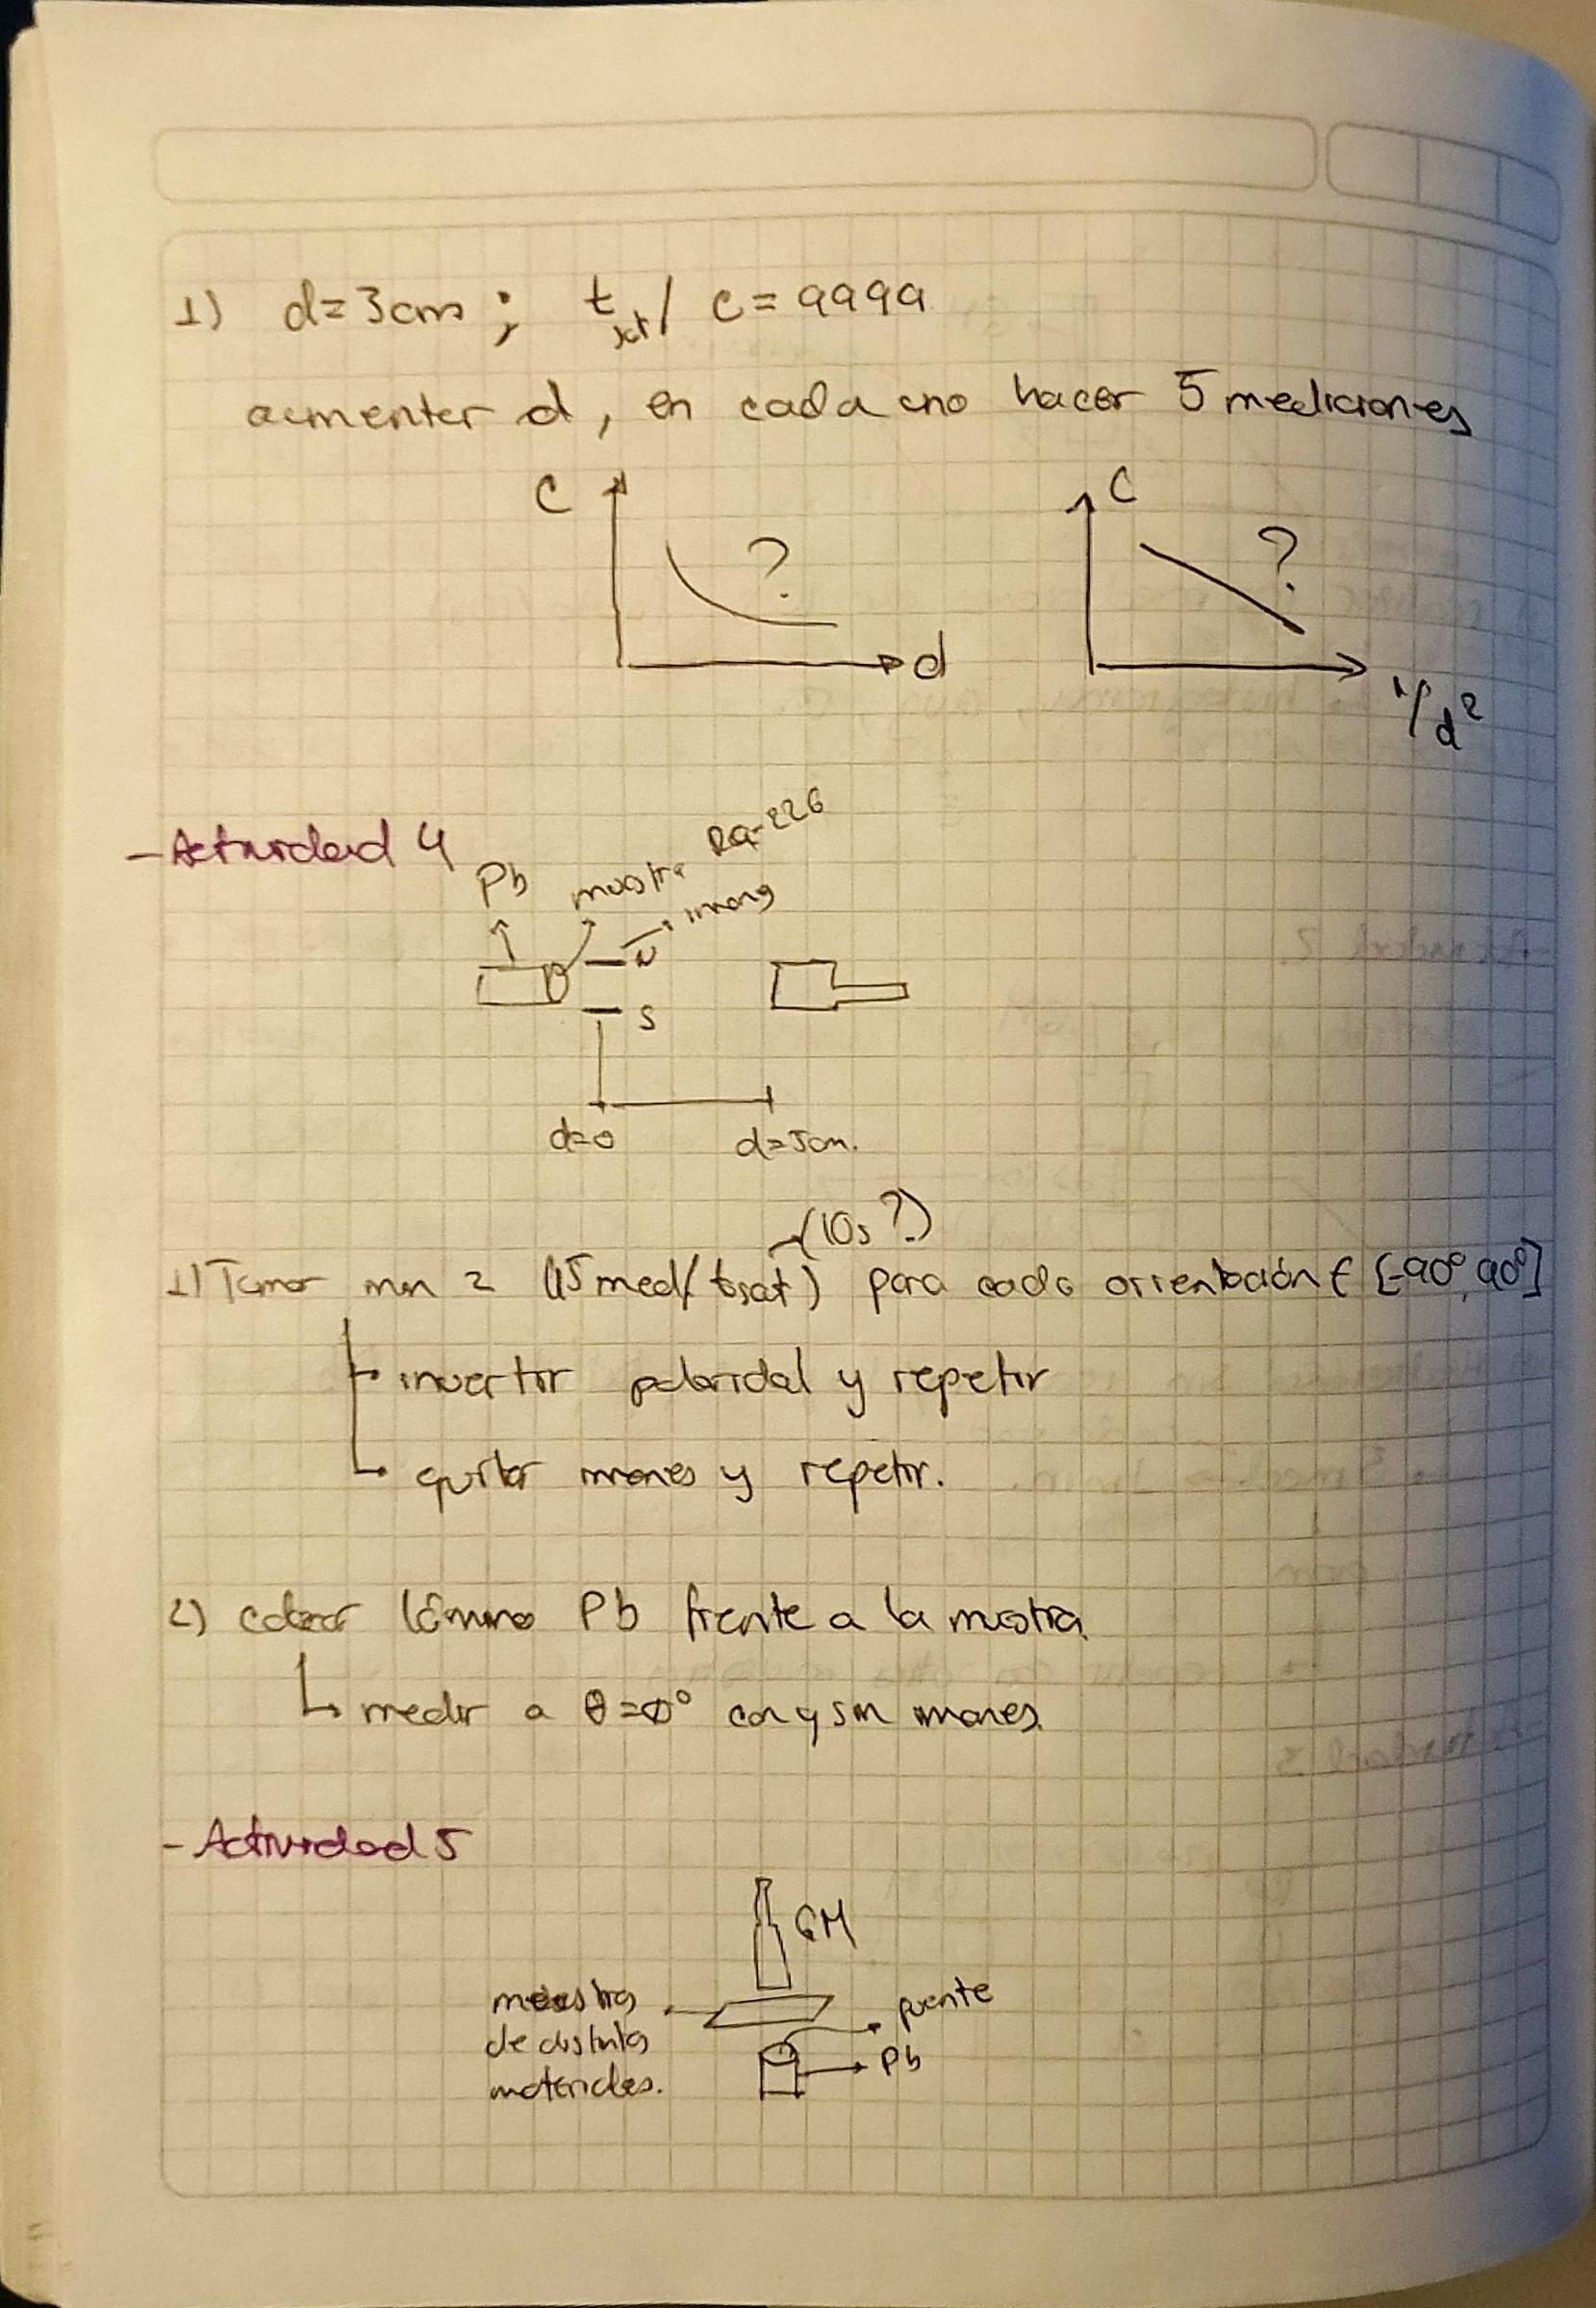 1) d=3cm ; t sat / C = 9999
aumentar d, en cada uno hacer 5 mediciones
C ? d
C ? 1/d²
- Actividad 4
Pb muestra Ra-226
N iman
S
d=0 d=5cm.
(10s?)
1) Tomar min 2 (15med/tsat) para cada orientación ∈ [-90°, 90°]
invertir polaridad y repetir
quitar imanes y repetir.
2) colocar lámina Pb frente a la muestra
medir a θ=0° con y sin imanes.
- Actividad 5
GM
muestras fuente
de distintos Pb
materiales.